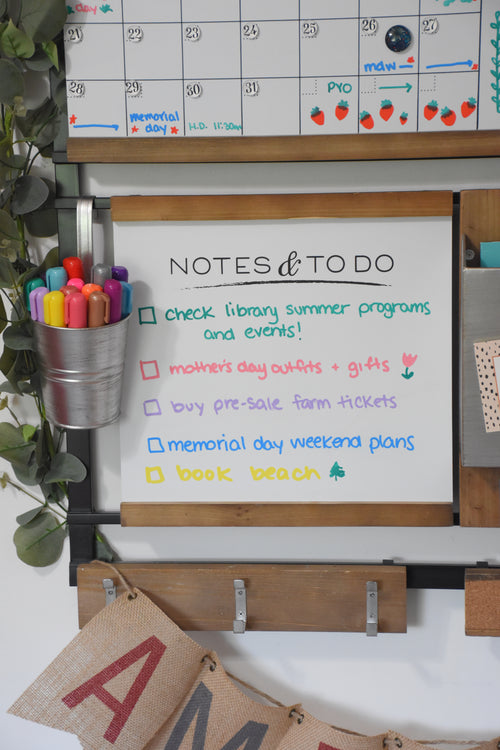 day
21 22 23 24 25 26 27
mdw
28 29 30 31
memorial
day
H.D. 11:30am
PYO
NOTES & TO DO
check library summer programs
and events!
mother's day outfits + gifts
buy pre-sale farm tickets
memorial day weekend plans
book beach
A M